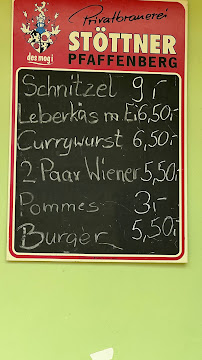 Privatbrauerei
STÖTTNER
PFAFFENBERG
des mog i
Schnitzel 9,-
Leberkäs m Ei 6,50,-
Currywurst 6,50,-
2 Paar Wiener 5,50,-
Pommes 3,-
Burger 5,50,-